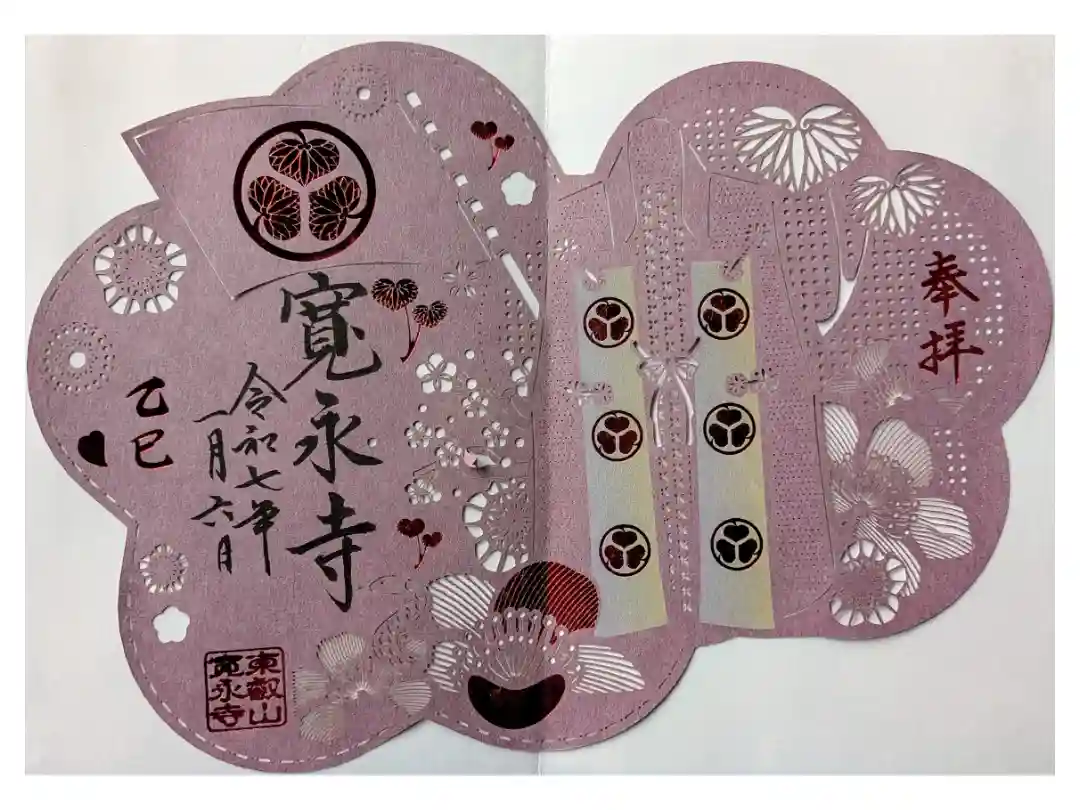 奉拝
寛永寺
令和七年
一月六日
乙巳
東叡山
寛永寺